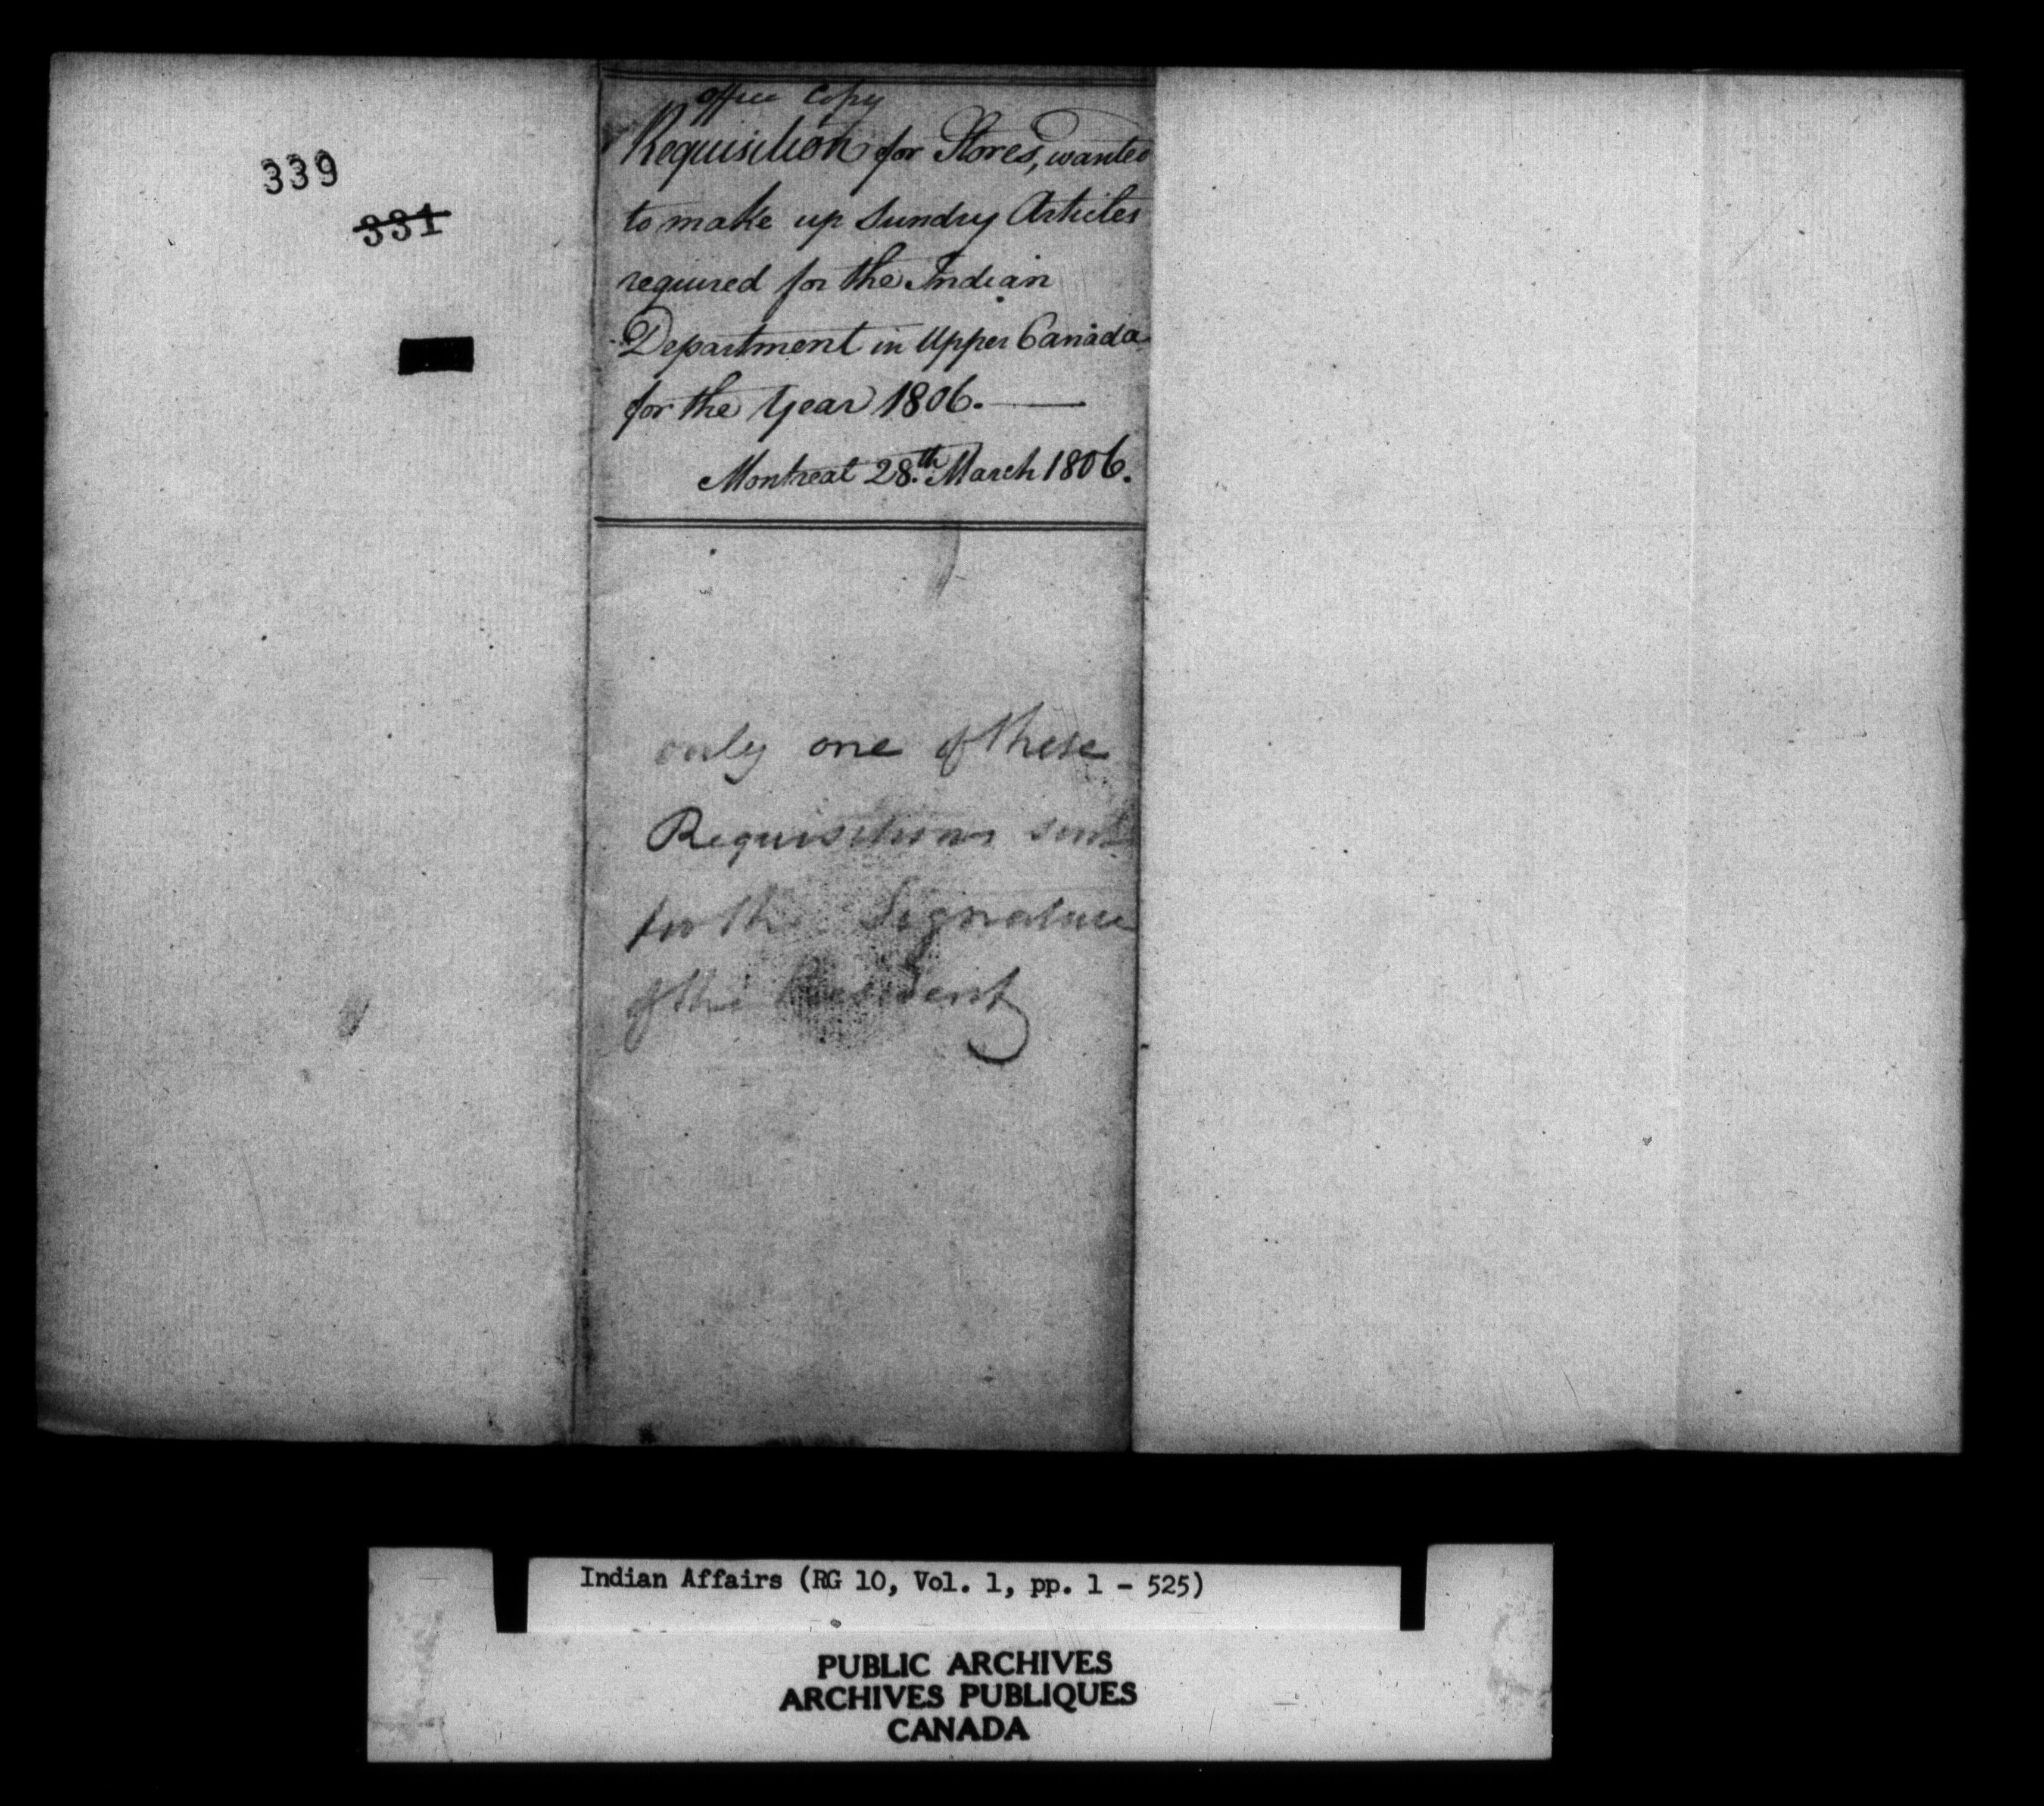 339
331
office Copy
Requisition for Stores, wanted
to make up Sundry Articles
required for the Indian
Department in Upper Canada
for the Year 1806.
Montreal 28th March 1806.
only one of these
Requisitions sent
for the Signature
of the President
Indian Affairs (RG 10, Vol. 1, pp. 1 - 525)
PUBLIC ARCHIVES
ARCHIVES PUBLIQUES
CANADA